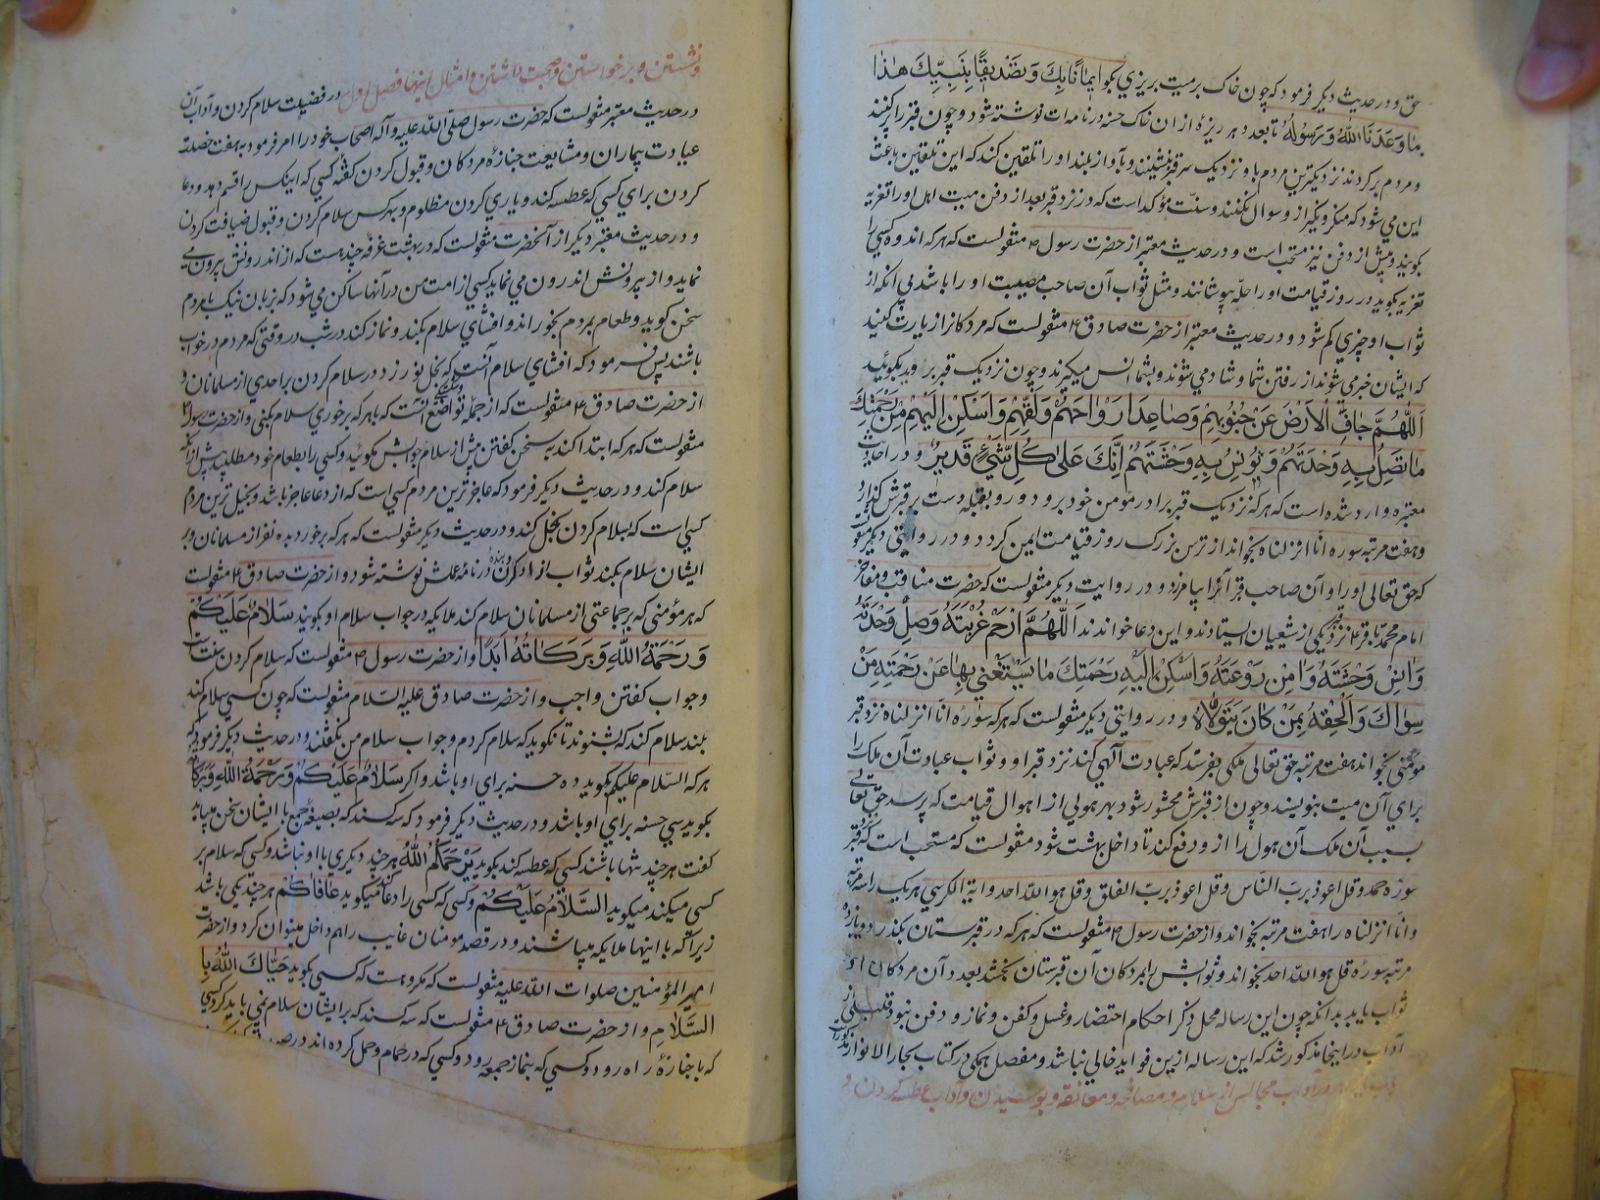 حق و در حدیث دیگر فرمود که چون خاک بر میت بریزی بگو ایمانا بك وتصدیقا بنبیك هذا
ما وعدنا الله ورسوله تا بعدد هر ریزهٔ از ان خاک حسنه در نامه ات نوشته شود و چون قبر را پر کنند
و مردم برگردند نزدیکترین مردم باو نزدیک سر قبر بنشیند و بآواز بلند او را تلقین کند که این تلقین باعث
این می شود که منکر و نکیر از و سوال نکنند و سنّت مؤکد است که در نزد قبر بعد از دفن میت اهل او را تعزیه
گویند و پیش از دفن نیز مستحب است و در حدیث معتبر از حضرت رسول ص منقولست که هر که اندوه کسی را
تعزیه بگوید در روز قیامت او را حلّه بپوشانند و مثل ثواب آن صاحب مصیبت او را باشد بی آنکه از
ثواب او چیزی کم شود و در حدیث معتبر از حضرت صادق ع منقولست که مردگانرا زیارت کنید
که ایشان خبر می شوند از رفتن شما و شاد می شوند و بشما انس میگیرند و چون نزدیک قبر بروید بگوئید
اللهم جاف الارض عن جنوبهم وصاعد ارواحهم ولقهم واسكن الیهم من رحمتك
ما تصل به وحدتهم وتونس به وحشتهم انك علی كل شیء قدیر و در احادیث
معتبره وارد شده است که هر که نزدیک قبر برادر مومن خود برود و رو بقبله دست بر قبرش گذارد
و هفت مرتبه سوره انّا انزلناه بخواند از ترس بزرک روز قیامت ایمن گردد و در روایتی دیگر منقولست
که حق تعالی او را و آن صاحب قبر را بیامرزد و در روایت دیگر منقولست که حضرت مناقب و مفاخر
امام محمد باقر ع نزد قبر یکی از شعیان ایستادند و این دعا خواندند اللهم ارحم غربته وصل وحدته
وآنس وحشته وآمن روعته واسكن الیه رحمتك ما یستغنی بها عن رحمته من
سواك والحقه بمن كان یتولاه و در روایتی دیگر منقولست که هر که سوره انّا انزلناه نزد قبر
مومنی بخواند هفت مرتبه حق تعالی ملکی بفرستد که عبادت آلهی کند نزد قبر او و ثواب عبادت آن ملک را
برای آن میت بنویسند و چون از قبرش محشور شود بهر هولی از اهوال قیامت که برسد حق تعالی
بسبب آن ملک آن هول را از و دفع کند تا داخل بهشت شود منقولست که مستحب است که نزد قبر
سوره حمد و قل اعوذ برب النّاس و قل اعوذ بربّ الفلق و قل هو اللّه احد و ایة الکرسی هر یک را سه مرتبه
و انّا انزلناه را هفت مرتبه بخواند و از حضرت رسول ص منقولست که هر که در قبرستان بگذرد و یازده
مرتبه سورهٔ قل هو اللّه احد بخواند و ثوابش را بمردگان آن قبرستان بخشد بعدد آن مردگان او
ثواب یابد بدانکه چون این رساله محل ذکر احکام احتضار و غسل و کفن و نماز و دفن نبود قلیلی از
آداب در اینجا مذکور شد که این رساله ازین فواید خالی نباشد و مفصل همگی در کتاب بحار الانوار مذکور است
آداب مجالس از سلام و مصافحه و معانقه و بوسیدن و آداب عطسه کردن و
و نشستن و برخواستن و صحبت داشتن و امثال اینها فصل اول در فضیلت سلام کردن و آداب آن
در حدیث معتبر منقولست که حضرت رسول صلی اللّه علیه و آله اصحاب خود را امر فرمود بهفت خصلت
عیادت بیماران و مشایعت جنازهٔ مردگان و قبول کردن گفتهٔ کسی که اینکس را قسم دهد و دعا
کردن برای کسی که عطسه کند و یاری کردن مظلوم و بهر کس سلام کردن و قبول ضیافت کردن
و در حدیث معتبر دیگر از آنحضرت منقولست که در بهشت غرفه چند هست که از اندرونش بیرون می
نماید و از بیرونش اندرون می نماید کسی از امت من در آنها ساکن می شود که بزبان نیک با مردم
سخن گوید و طعام بمردم بخوراند و افشای سلام بکند و نماز کند در شب در وقتی که مردم در خواب
باشند پس فرمود که افشای سلام آنست که بخل نورزد در سلام کردن بر احدی از مسلمانان و
از حضرت صادق ع منقولست که از جمله تواضع آنست که بهر که برخوری سلام بکنی و از حضرت رسول ص
منقولست که هر که ابتدا کند بسخن گفتن پیش از سلام جوابش مگوئید و کسی را بطعام خود مطلبید پیش از آنکه
سلام کند و در حدیث دیگر فرمود که عاجز ترین مردم کسی است که از دعا عاجز باشد و بخیل ترین مردم
کسی است که بسلام کردن بخل کند و در حدیث دیگر منقولست که هر که برخورد بده نفر از مسلمانان و بر
ایشان سلام بکند ثواب آزاد کردن بنده در نامهٔ عملش نوشته شود و از حضرت صادق ع منقولست
که هر مؤمنی که بر جماعتی از مسلمانان سلام کند ملایکه در جواب سلام او گویند سلام علیكم
ورحمة الله وبركاته ابدا و از حضرت رسول ص منقولست که سلام کردن سنّت
و جواب گفتن واجب و از حضرت صادق علیه السلام منقولست که چون کسی سلام کند
بلند سلام کند که بشنوند تا نگوید که سلام کردم و جواب سلام من نگفتند و در حدیث دیگر فرمود که
هر که السّلام علیکم بگوید ده حسنه برای او باشد و اکر سلام علیكم ورحمة الله وبركاته
بگوید سی حسنه برای او باشد و در حدیث دیگر فرمود که سه کسند که بصیغهٔ جمع با ایشان سخن میباید
گفت هر چند تنها باشند کسی که عطسه کند بگوید یرحمكم الله هر چند دیگری با او نباشد و کسی که سلام بر
کسی میکند میگوید السلام علیكم و کسی که کسی را دعا میکند میگوید عافاكم هر چند یکی باشد
زیرا که با اینها ملایکه میباشند و در قصد مومنان غایب را هم داخل میتوان کرد و از حضرت
امیر المؤمنین صلوات اللّه علیه منقولست که مکروهست که کسی بگوید حیاك الله با
السلام و از حضرت صادق ع منقولست که سه کسند که بر ایشان سلام نمی باید کرد کسی
که با جنازهٔ راه رود و کسی که بنماز جمعه رود و کسی که در حمام و حمل کرده اند در